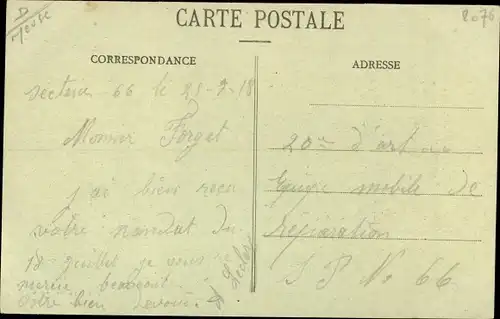 D
Meuse
8076
CARTE POSTALE
CORRESPONDANCE
ADRESSE
secteur 66 le 28-7-18
Monsieur Forget
j'ai bien recu
votre mandat du
18 juillet je vous re
mercie beaucoup
votre bien devoué
Leclerc
20me d'art
Equipe mobile de
Réparation
S P No 66